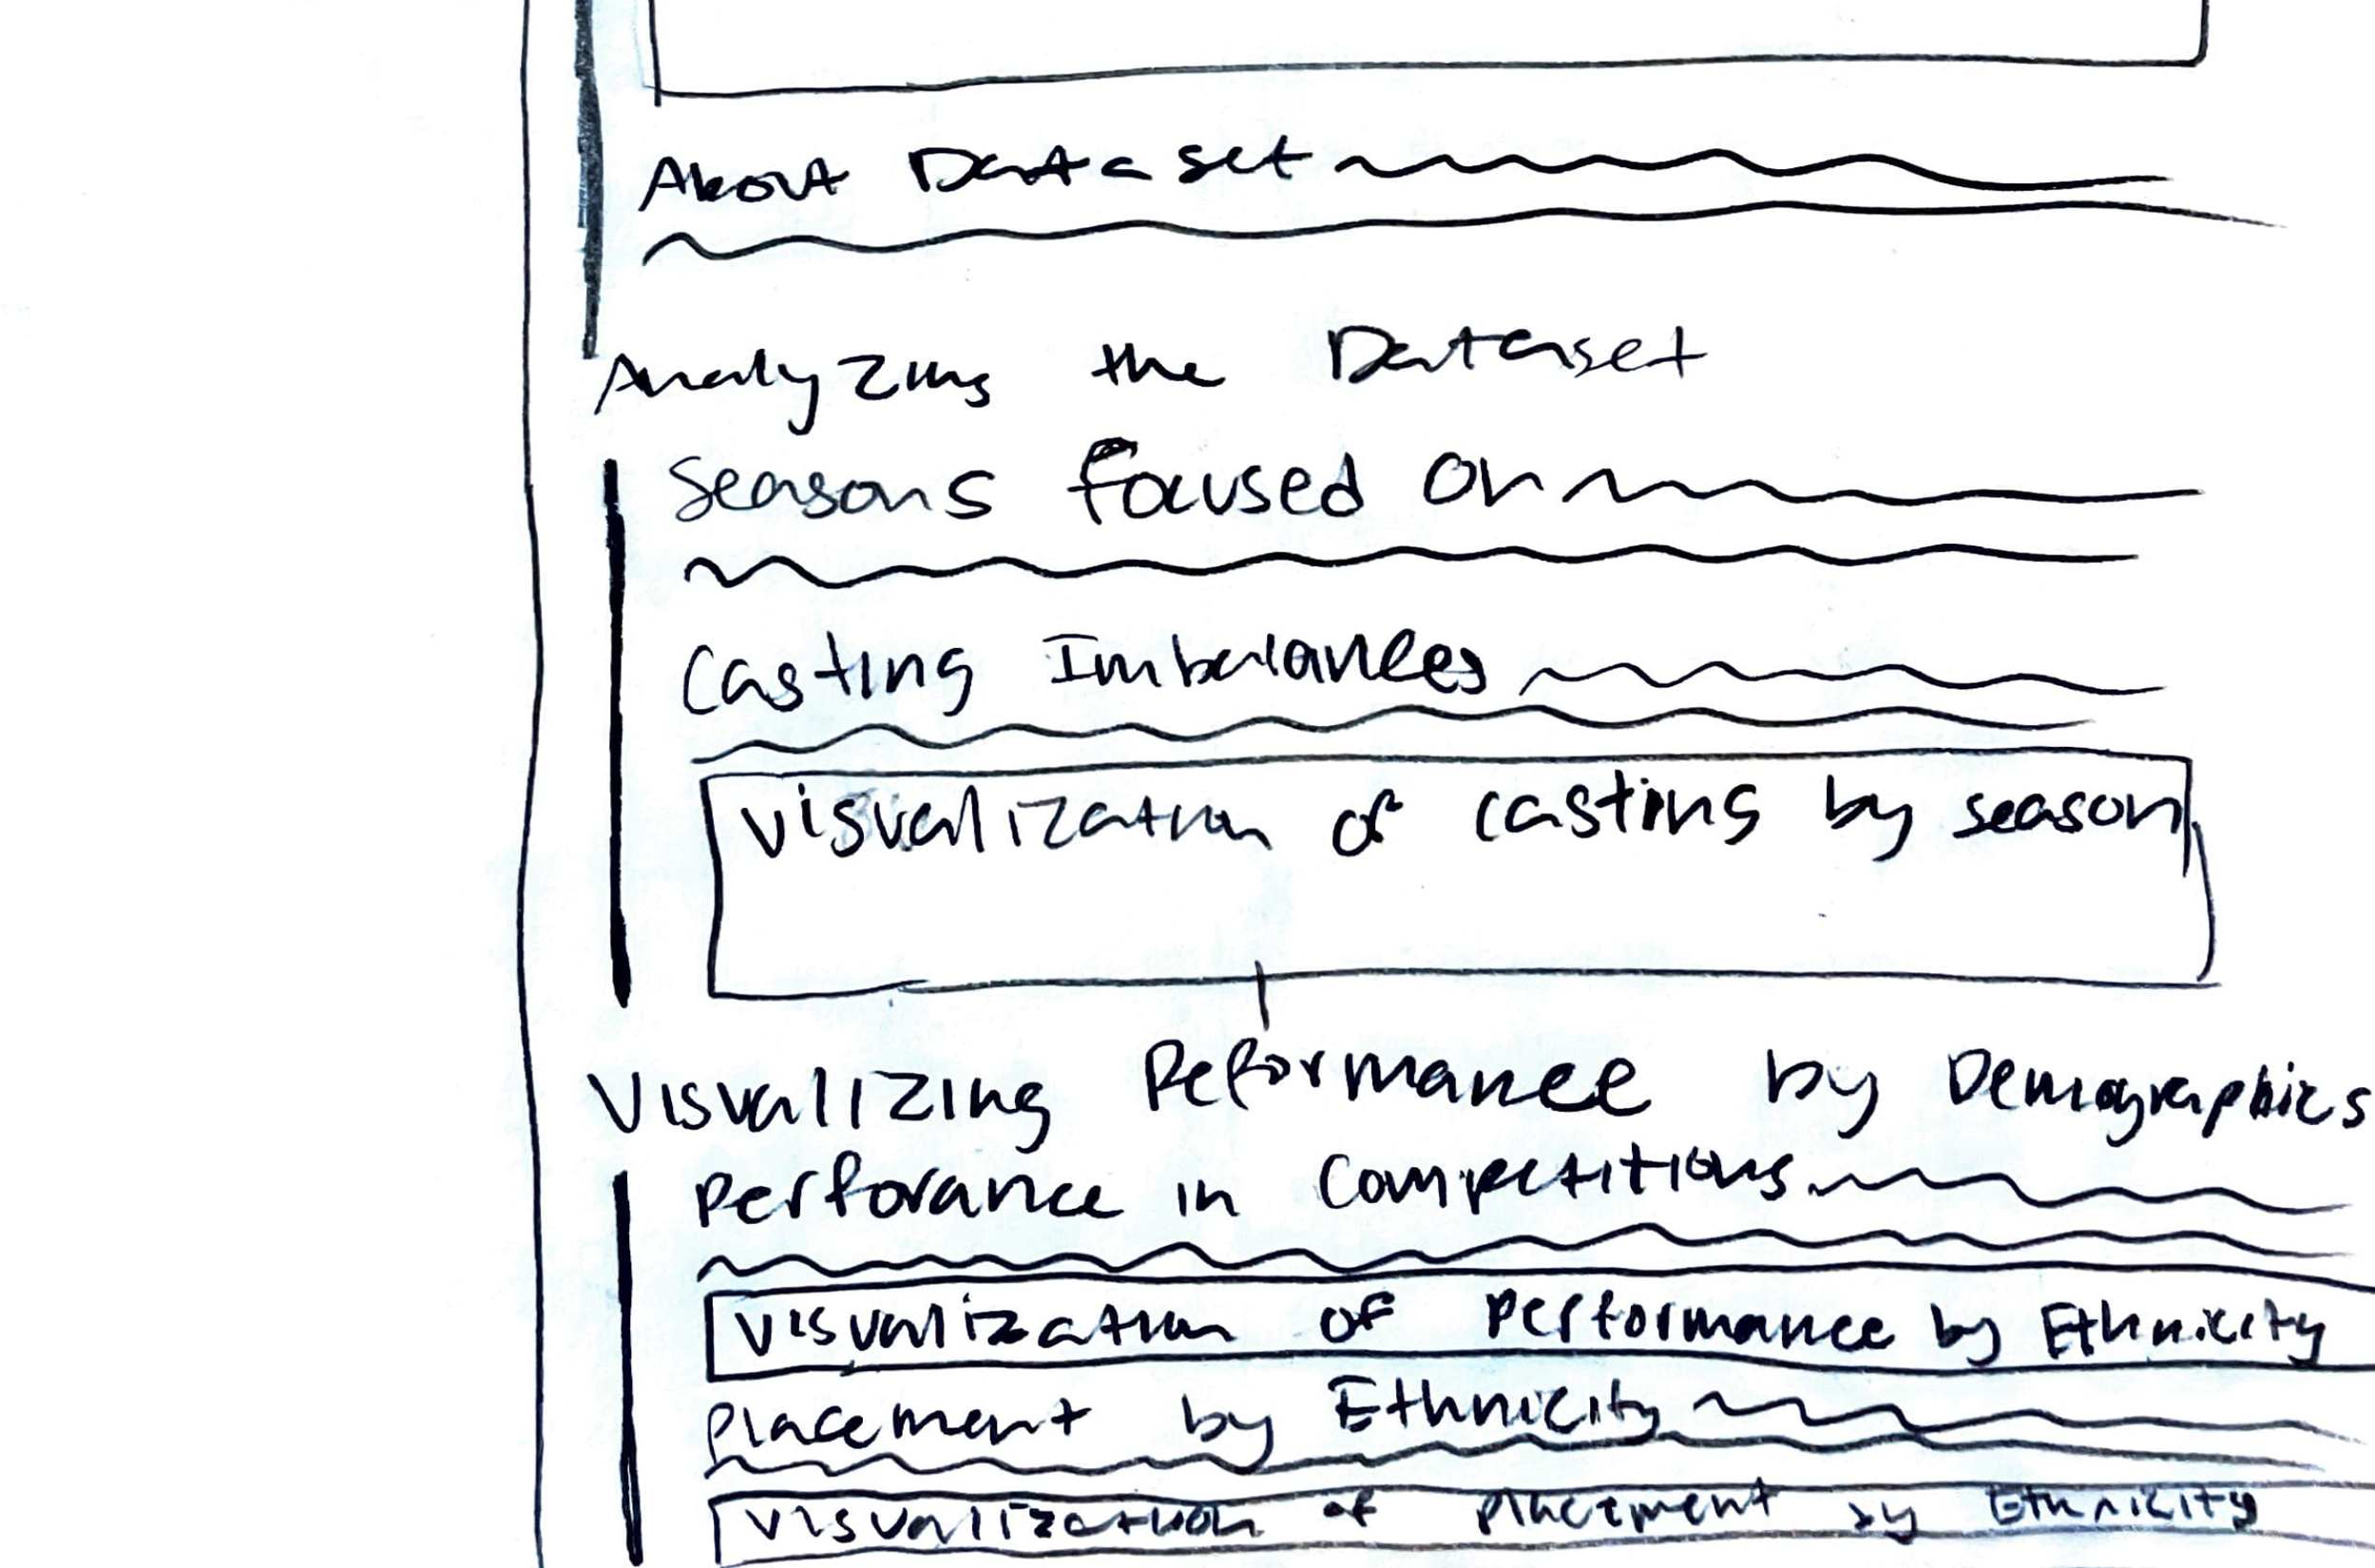 About Dataset
Analyzing the Dataset
Seasons Focused On
Casting Imbalances
Visualization of casting by season
Visualizing Peformance by Demographics
Perforance in Competitions
Visualization of Performance by Ethnicity
Placement by Ethnicity
Visualization of Placement by Ethnicity